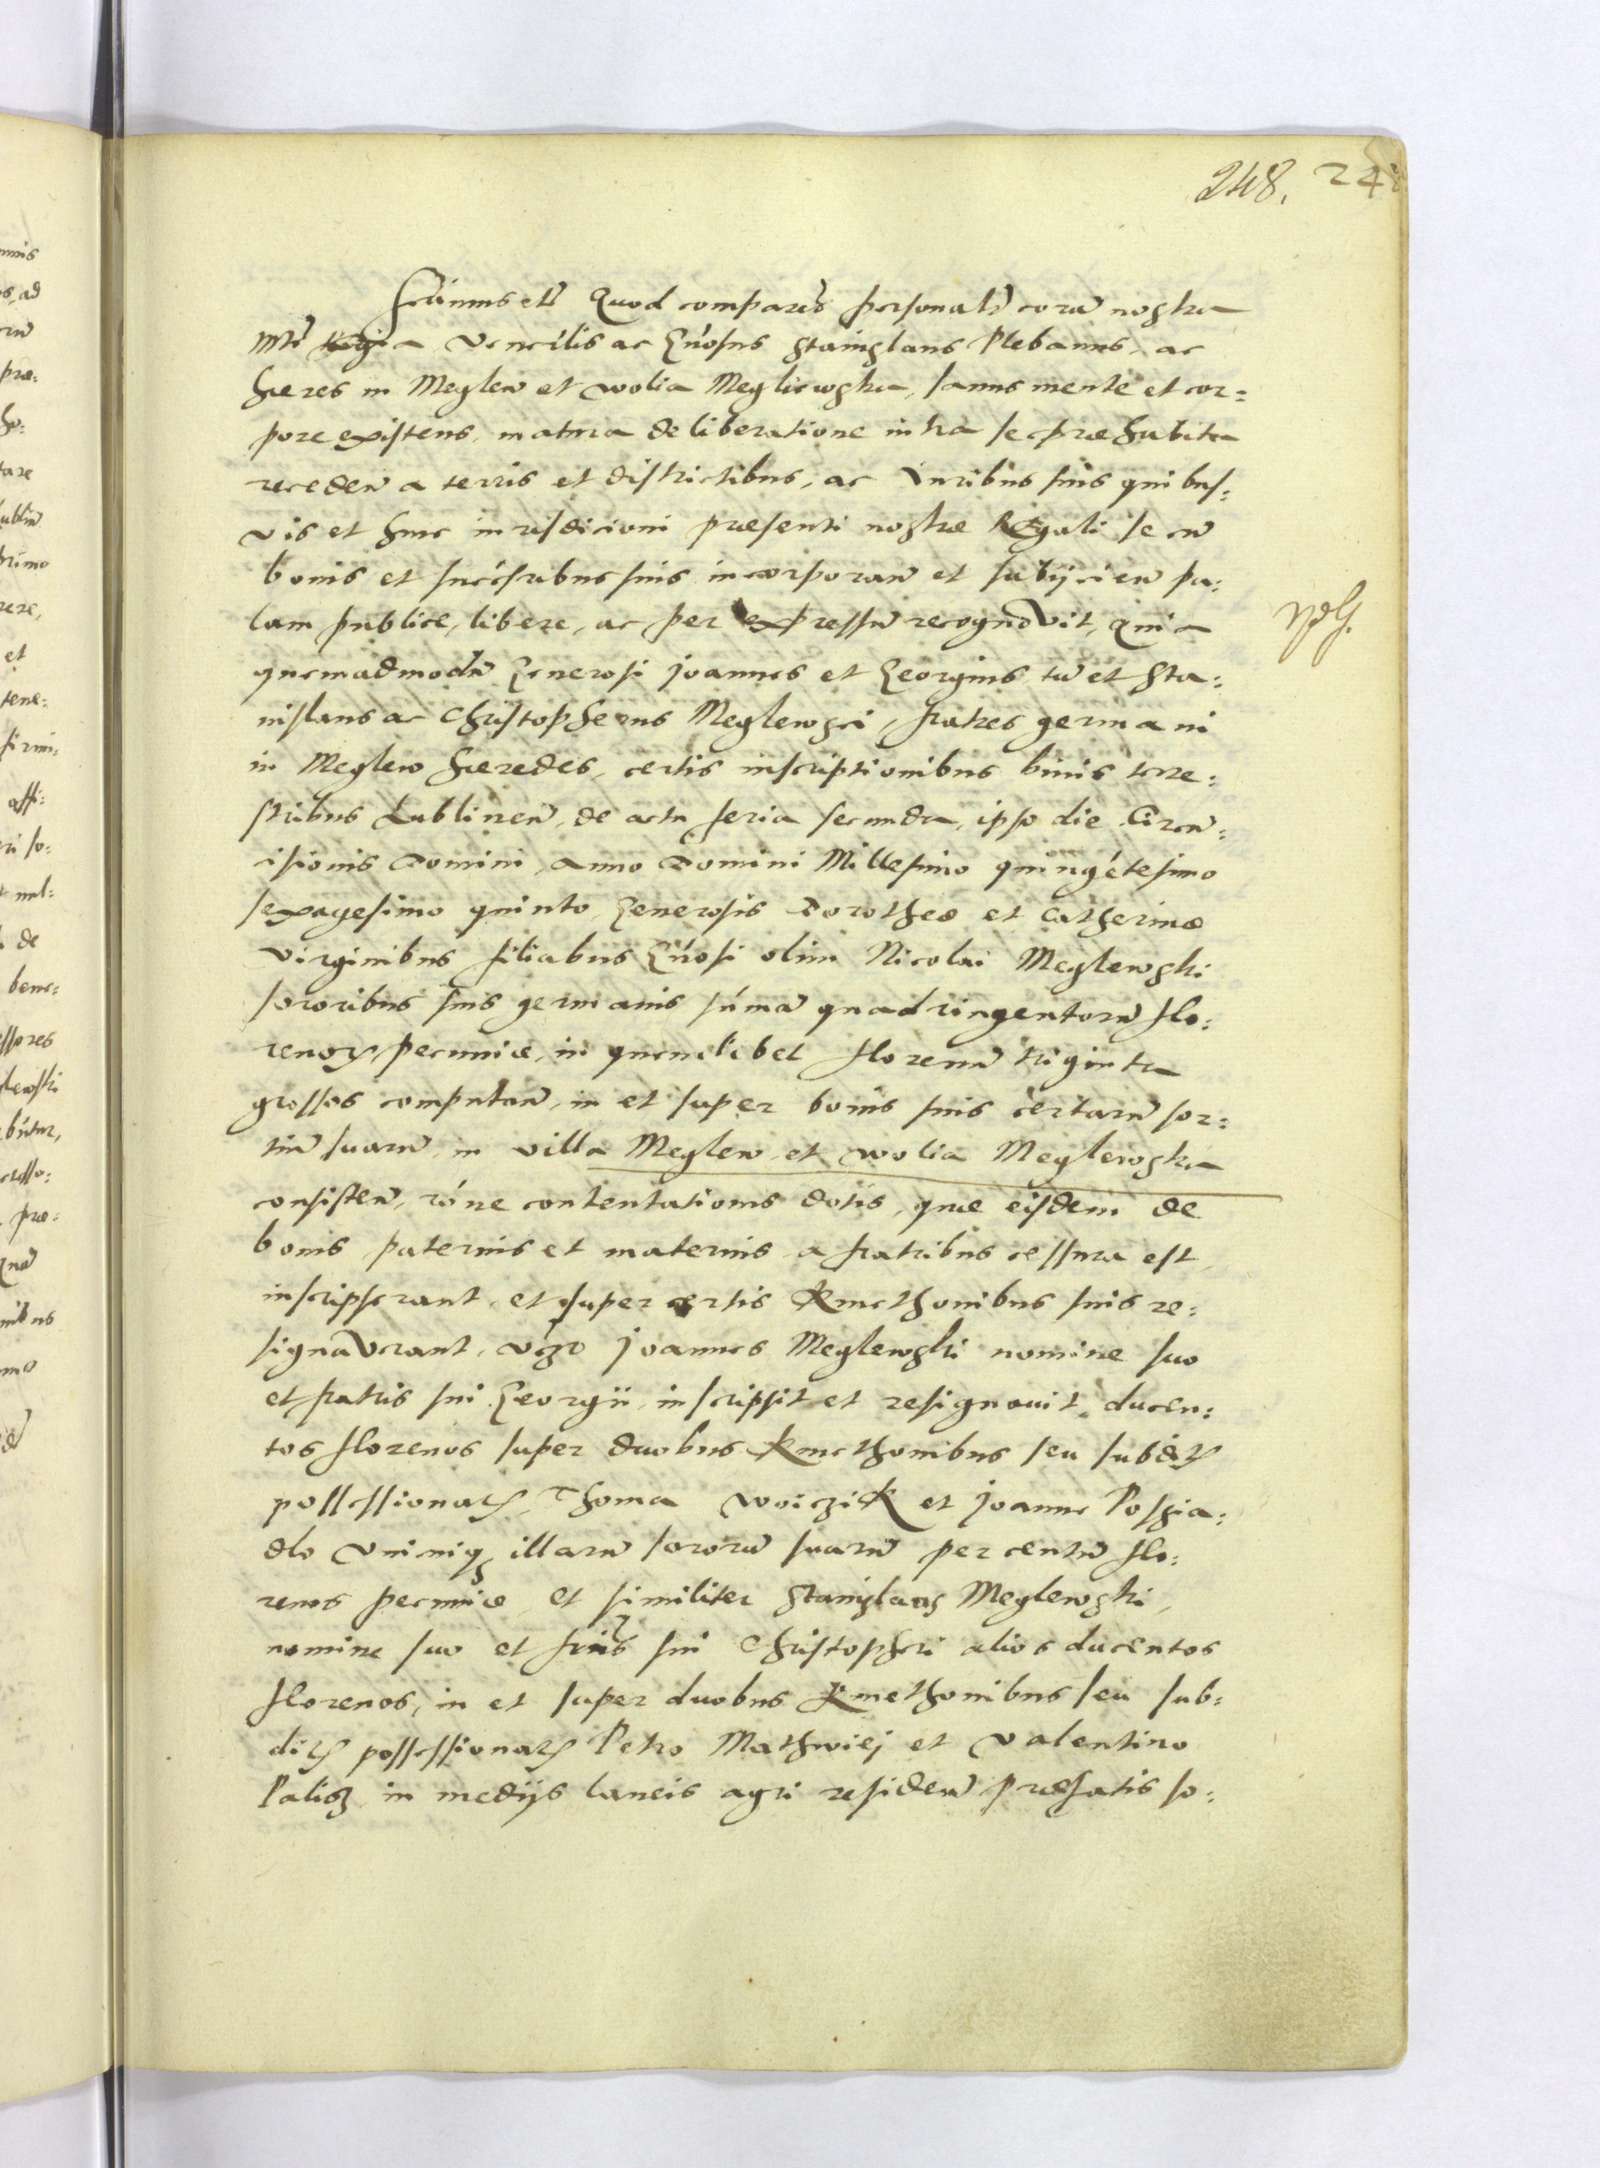 248. 24
Scimus etc̃ Quod comparẽs personalr̃ corã nostra
Mtẽ Regia Venerãlis ac Gńosus Stanislaus Plebanus, ac
hæres in Meglew et wolia Megliewska, sanus mente et cor:
pore existens, matura deliberatione intra se præhabita
recedeñ a terris et districtibus, ac Iuribus suis quibus:
vis et huic iurisdicioni præsenti nostræ Regali se cũ
bonis et succ̃soribus suis incorporañ et subijcieñ pa:
lam publice, libere, ac per expressũ recognovit, Quia
quemadmodũ Generosi Joannes et Georgius tũ et Sta:
nislaus ac Christopherus Meglewsci, fratres germani
in Meglew hæredes, certis inscriptionibus binis terre:
stribus Lublineñ, de actu feria secunda, ipso die Circũ:
isionis Domini, anno Domini Millesimo quingẽtesimo
sexagesimo quinto, Generosis Dorotheæ et Catherinæ
virginibus filiabus Gńosi olim Nicolai Meglewski
sororibus suis germanis sũmã quadringentorũ flo:
renorꝝ pecuniæ, in quemlibet florenũ triginta
grossos computañ, in et super bonis suis certarũ sor:
tiũ suarũ in villa Meglew et wolia Meglewska
consisteñ, rõne contentationis dotis, quæ eisdem de
bonis paternis et maternis a fratribus cessura est
inscripserant, et super certis Kmethonibus suis re:
signaverant, vtpo Joannes Meglewski nomine suo
et fratris sui Georgii, inscripsit et resignavit ducen:
tos florenos super duobus Kmethonibus seu subdiꝭ
possessionatꝭ, Thoma Woiczik et Joanne Poszia:
dlo vniuiqꝫ illarũ sororũ suarũ per centũ flo:
renos pecuniæ, et similiter Stanislaus Meglewski,
nomine suo et frĩs sui Christopheri alios ducentos
florenos, in et super duobus Kmethonibus seu sub:
ditꝭ possessionatꝭ Petro Mathwiej et Valentino
Palisz in medijs laneis agri resideñ præfatis so: